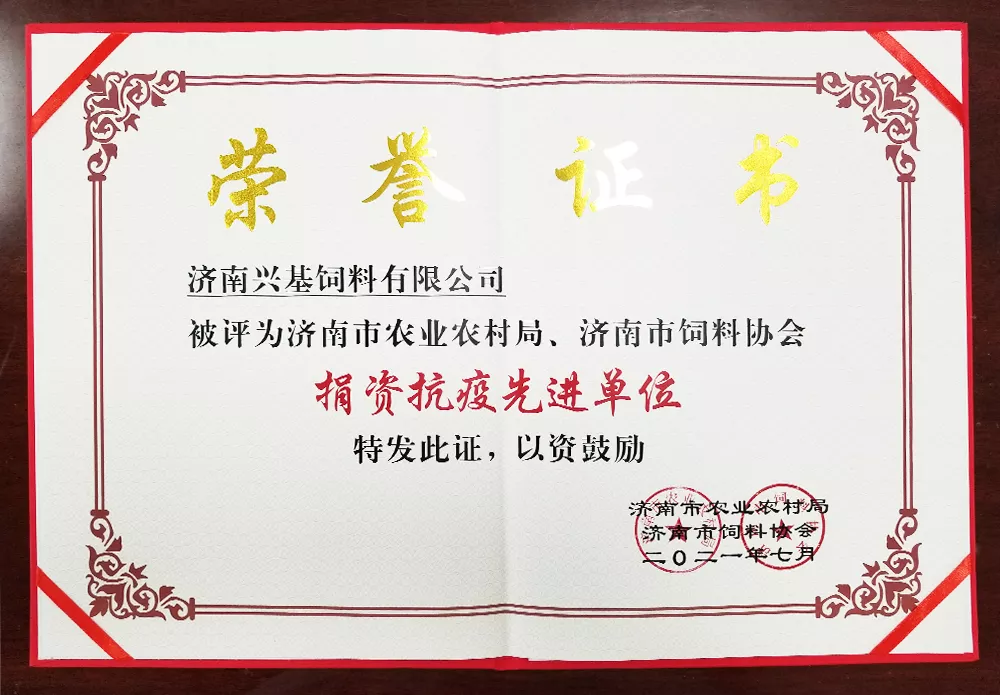 荣誉证书
济南兴基饲料有限公司
被评为济南市农业农村局、济南市饲料协会
捐资抗疫先进单位
特发此证，以资鼓励
济南市农业农村局
济南市饲料协会
二〇二一年七月